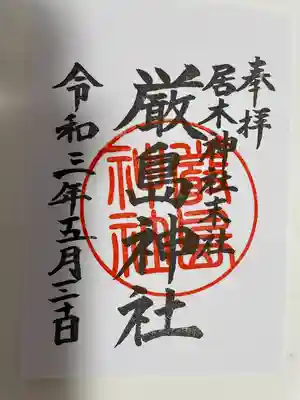 奉拝
居木神社末社
厳島神社
令和三年五月三十日
嚴島
神社